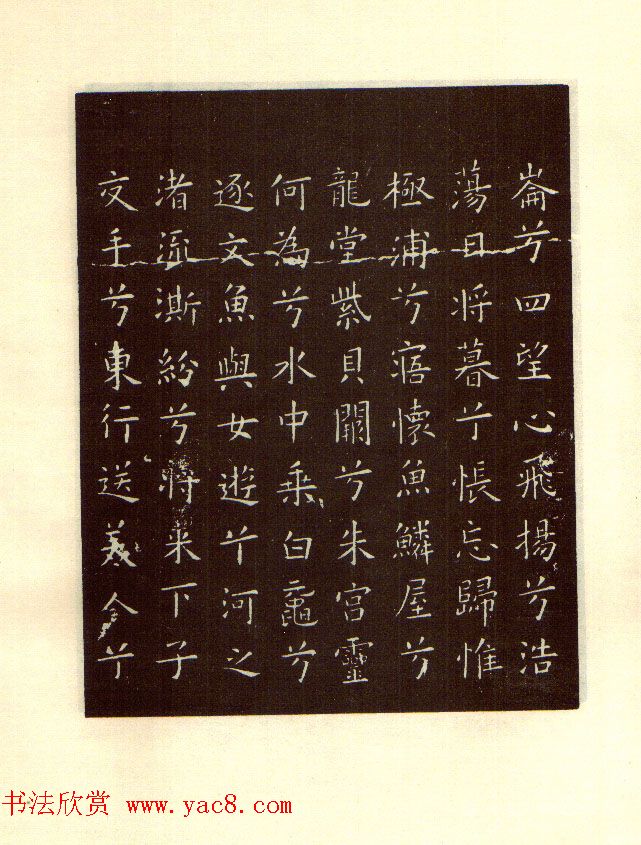 崙兮四望心飛揚兮浩
蕩日将暮兮悵忘歸惟
極浦兮寤懷魚鱗屋兮
龍堂紫貝闕兮朱宮靈
何為兮水中乘白黿兮
逐文魚與女遊兮河之
渚流澌紛兮將来下子
交手兮東行送美人兮
书法欣赏 www.yac8.com